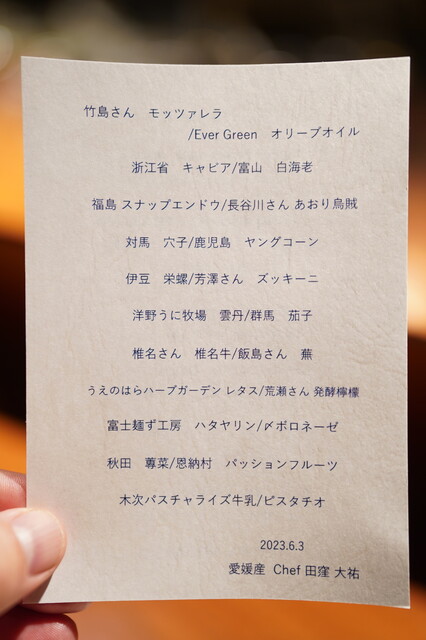 竹島さん　モッツァレラ
/Ever Green　オリーブオイル
浙江省　キャビア/富山　白海老
福島 スナップエンドウ/長谷川さん あおり烏賊
対馬　穴子/鹿児島　ヤングコーン
伊豆　栄螺/芳澤さん　ズッキーニ
洋野うに牧場　雲丹/群馬　茄子
椎名さん　椎名牛/飯島さん　蕪
うえのはらハーブガーデン レタス/荒瀬さん 発酵檸檬
富士麺ず工房　ハタヤリン/〆ボロネーゼ
秋田　蓴菜/恩納村　パッションフルーツ
木次パスチャライズ牛乳/ピスタチオ
2023.6.3
愛媛産 Chef 田窪 大祐